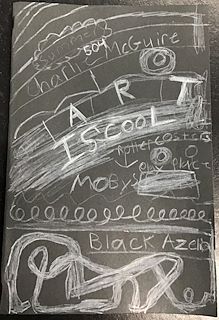 Summer
504
Charli McGuire
ART
IS COOL
Roller coster
MOBYS
Black Azela